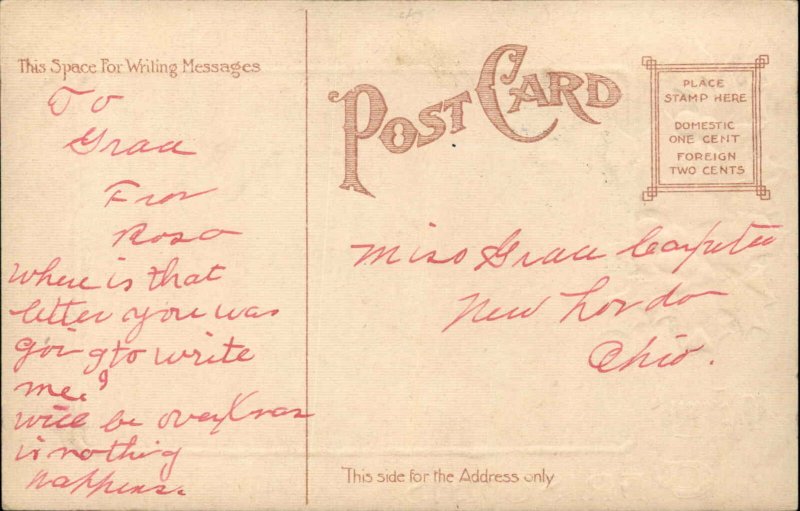 This Space For Writing Messages
To
Grace
From
Rosa
Where is that
letter you was
going to write
me?
will be over Xmas
if nothing
happens.
POST CARD
PLACE
STAMP HERE
DOMESTIC
ONE CENT
FOREIGN
TWO CENTS
Miss Grace Carpenter
New London
Ohio.
This side for the Address only